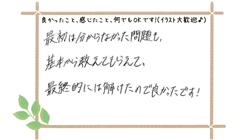 良かったこと、感じたこと、何でもOKです!(イラスト大歓迎♪)
最初は分からなかった問題も、
基本から教えてもらえて、
最終的には解けたので良かったです!